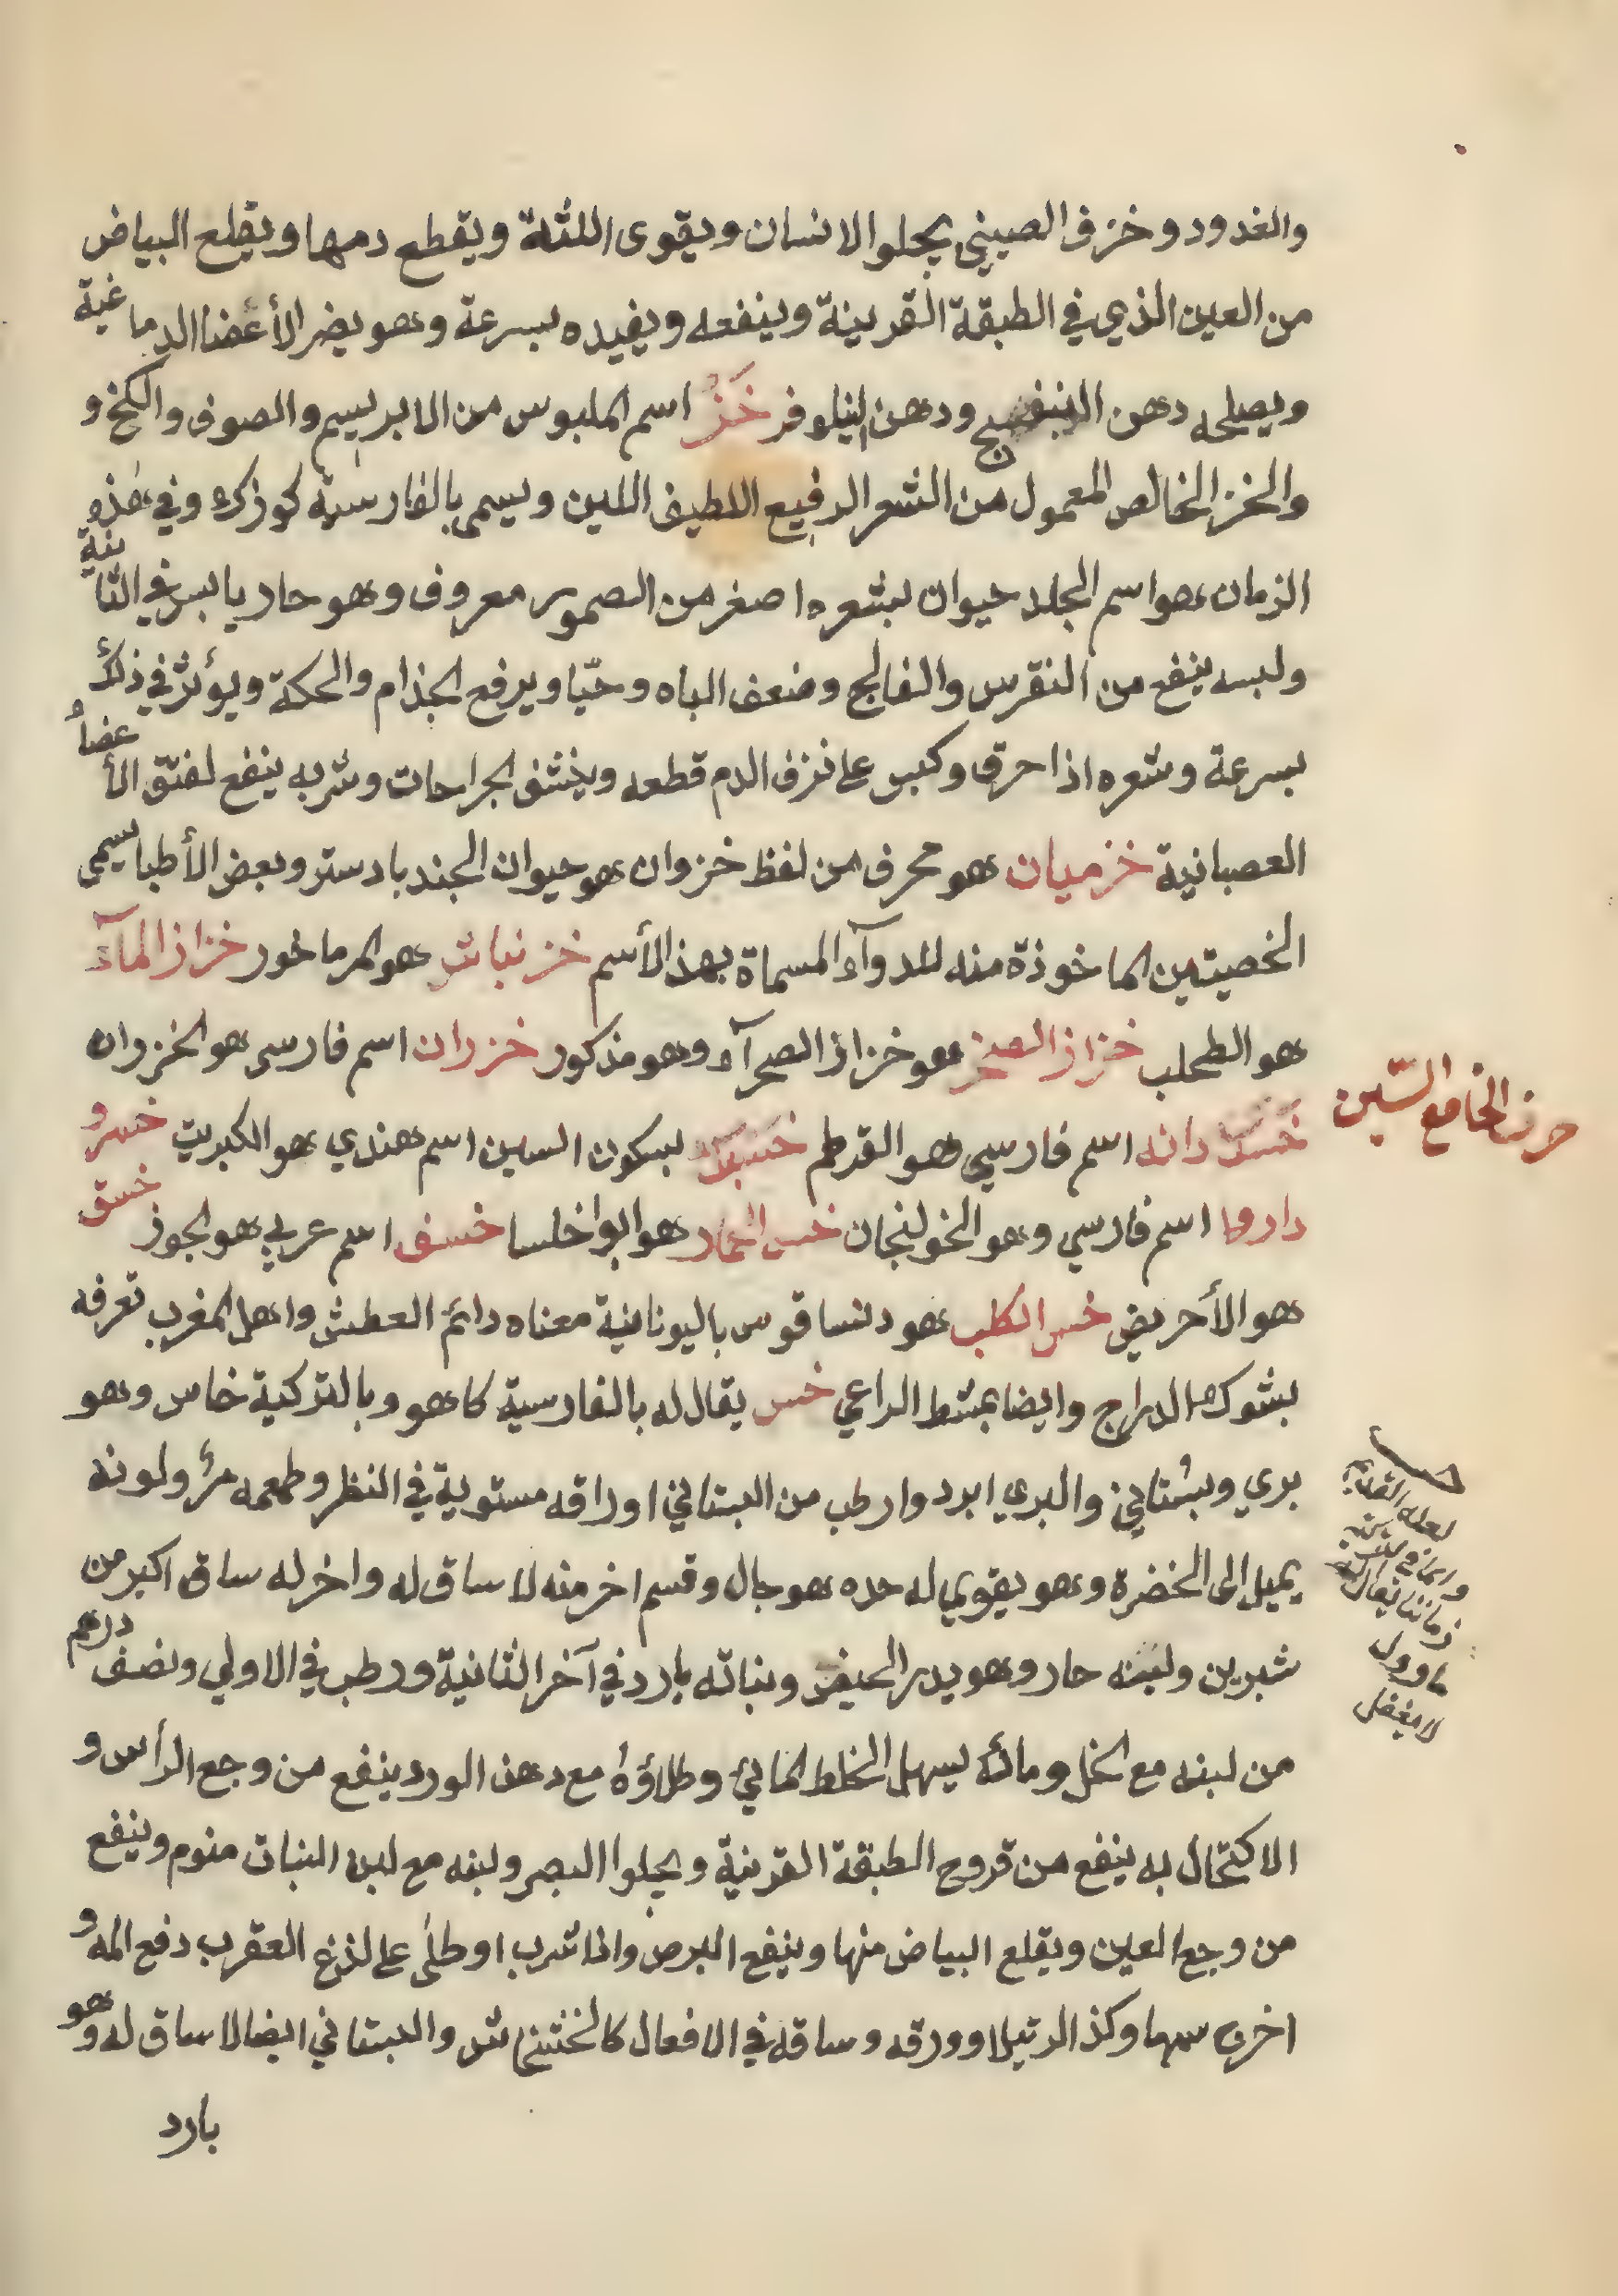 والغدود وخزف الصيني يجلوا الانسان ويقوى اللثة ويقطع دمها ويقلع البياض
من العين الذي في الطبقة القرينة وينفعه ويفيده بسرعة وهو يضر الأعضا الدماغية
ويصلحه دهن البنفسج ودهن النيلوفر خَزُ اسم الملبوس من الابريسم والصوف والكخ و
والخز الخالص المعمول من الشعر الرفيع اللطيف اللين ويسمى بالفارسية كوزكره وفي هذه
الزمان هو اسم الجلد حيوان بشعره اصغر من الصمور معروف وهو حار يابس في الثانية
ولبسه ينفع من النقرس والفالج وضعف الباه وحبّا ويرفع الجذام والحكة ويؤثر في ذلك
بسرعة وشعره اذا حرق وكبس على نزف الدم قطعه وينشف الجراحات وشربه ينفع لفتق الأعضاُ
العصبانية خزميان هو محرف من لفظ خزوان هو حيوان الجندبادستر وبعض الأطبا يسمى
الخصيتين الماخوذة منه للدوآء المسماة بهذ الأسم خزنباش هو المرماخور خزاز المآء
هو الطحلب خزاز الصخر هو خزاز الصحرآء وهو مذكور خزران اسم فارسى هو الخزروان
حرف الخا مع السّين
خَسَكْ دانه اسم فارسي هو القرطم خسبكه بسكون السين اسم هندي هو الكبريت خسرو
دارو اسم فارسي وهو الخولنجان خس الحمار هو ابواخلسا خسف اسم عربي هو الجوز خسق
هو الأحريض خس الكلب هو دنساقوس باليونانية معناه دائم العطش واهل المغرب تعرفه
بشوك الدراج وايضا بمشط الراعي خس يقال له بالفارسية كاهو وبالتركية خاس وهو
بري وبستاني والبري ابرد وارطب من البستاني اوراقه مستوية في النظر وطعمه مرّ ولونه
يميل الى الخضرة وهو يقوي له حده هو جال وقسم اخر منه لا ساق له واخر له ساق اكبر من
شبرين ولبنه حار وهو يدر الحيض ونباته بارد في آخر الثانية ورطب في الاولي ونصف درهم
من لبنه مع الخل ومائه يسهل الخلط المائي وطلاؤه مع دهن الورد ينفع من وجع الرأس و
الاكتحال به ينفع من قروح الطبقة القرينة ويجلوا البصر ولبنه مع لبن البنات منوم وينفع
من وجع العين ويقلع البياض منها وينفع البرص واذا شرب او طلى على لذغ العقرب دفع المه و
اخرج سمها وكذ الرتيلا وورقه وساقه في الافعال كالخشخاش والبستاني ايضا لا ساق له وهو
بارد
لعله
زماننا يقال له
لا مغفل